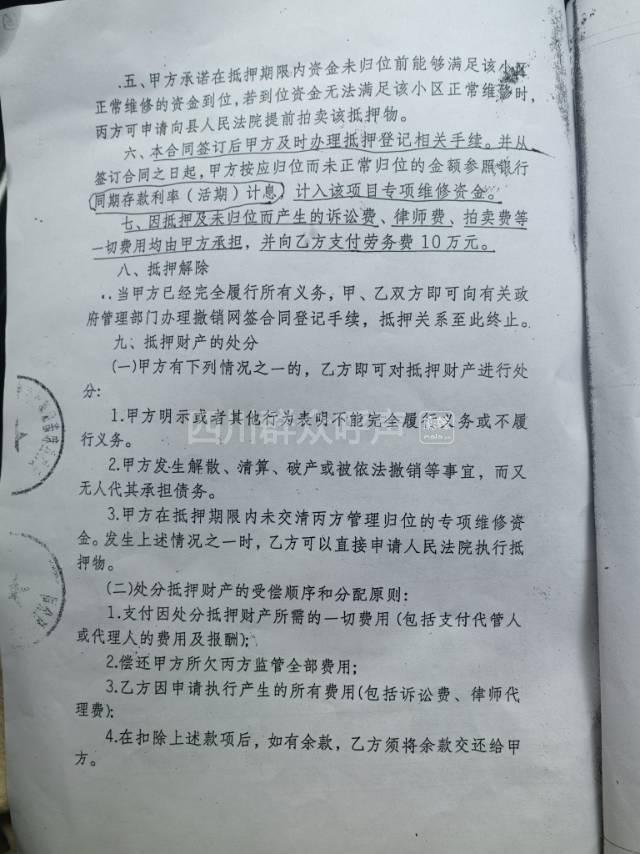 五、甲方承诺在抵押期限内资金未归位前能够满足该小区
正常维修的资金到位,若到位资金无法满足该小区正常维修时,
丙方可申请向县人民法院提前拍卖该抵押物。
六、本合同签订后甲方及时办理抵押登记相关手续。并从
签订合同之日起,甲方按应归位而未正常归位的金额参照银行
同期存款利率(活期)计息,计入该项目专项维修资金。
七、因抵押及未归位而产生的诉讼费、律师费、拍卖费等
一切费用均由甲方承担,并向乙方支付劳务费10万元。
八、抵押解除
当甲方已经完全履行所有义务,甲、乙双方即可向有关政
府管理部门办理撤销网签合同登记手续,抵押关系至此终止。
九、抵押财产的处分
(一)甲方有下列情况之一的,乙方即可对抵押财产进行处
分:
1.甲方明示或者其他行为表明不能完全履行义务或不履
行义务。
四川群众呼声
2.甲方发生解散、清算、破产或被依法撤销等事宜,而又
无人代其承担债务。
3.甲方在抵押期限内未交清丙方管理归位的专项维修资
金。发生上述情况之一时,乙方可以直接申请人民法院执行抵
押物。
(二)处分抵押财产的受偿顺序和分配原则:
1.支付因处分抵押财产所需的一切费用(包括支付代管人
或代理人的费用及报酬);
2.偿还甲方所欠丙方监管全部费用;
3.乙方因申请执行产生的所有费用(包括诉讼费、律师代
理费);
4.在扣除上述款项后,如有余款,乙方须将余款交还给甲
方。